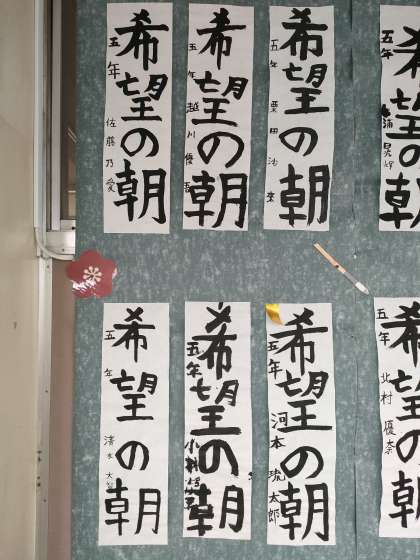 希望の朝
五年 佐藤乃愛
希望の朝
五年 越川優吾
希望の朝
五年 栗田沙葉
希望の朝
五年
希望の朝
五年 清水大
希望の朝
五年 小林
希望の朝
五年 河本琉太郎
希望の朝
五年 北村優奈